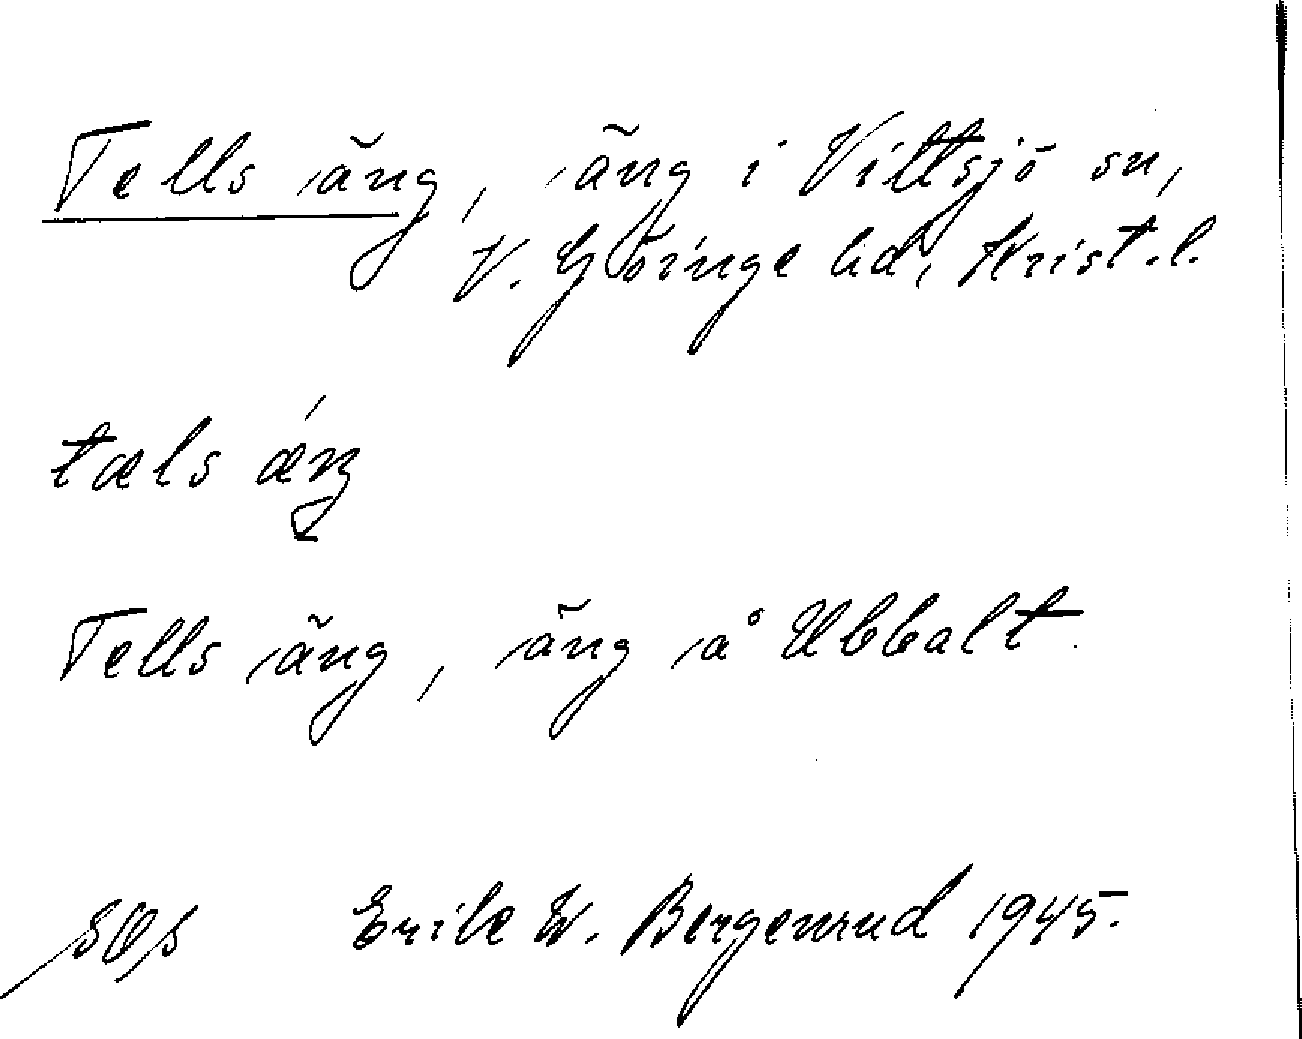 Tells äng, äng i Vittsjö sn,
V. Göinge hd, Krist.l.
tæls ǽŋ
Tells äng, äng å Ubbalt.
Erik W. Bergenrud 1945.